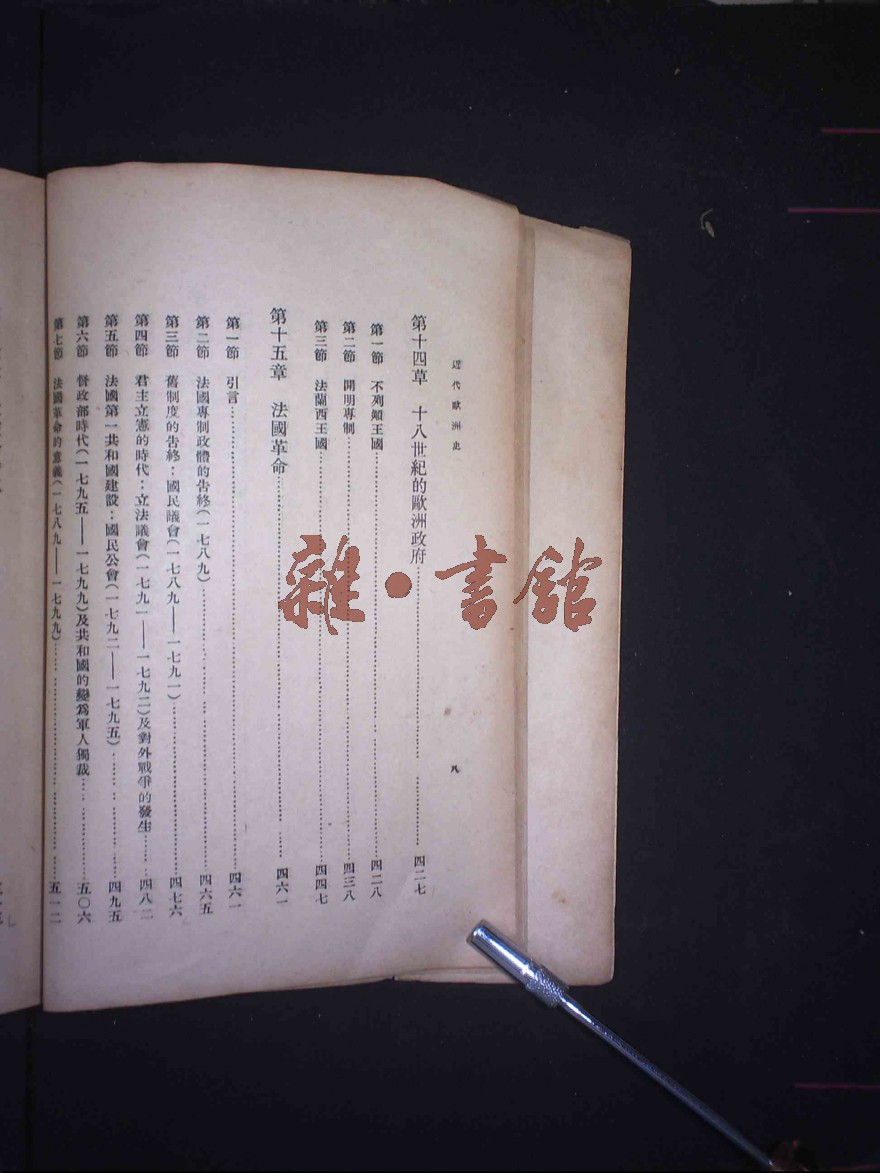 近代歐洲史
八
第十四章 十八世紀的歐洲政府……四二七
第一節 不列顛王國……四二八
第二節 開明專制……四三八
第三節 法蘭西王國……四四七
第十五章 法國革命……四六一
第一節 引言……四六一
第二節 法國專制政體的告終(一七八九)……四六五
第三節 舊制度的告終:國民議會(一七八九——一七九一)……四七六
第四節 君主立憲的時代:立法議會(一七九一——一七九二)及對外戰爭的發生……四八二
第五節 法國第一共和國建設:國民公會(一七九二——一七九五)……四九五
第六節 督政部時代(一七九五——一七九九)及共和國的變爲軍人獨裁……五〇六
第七節 法國革命的意義(一七八九——一七九九)……五一二
雜·書館